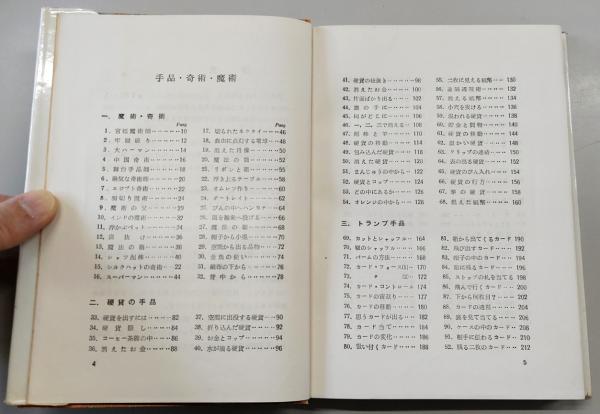 手品・奇術・魔術
一. 魔術・奇術
Page
1. 宮廷魔術師 10
2. 牢獄破り 12
3. 大ハーマン 14
4. 中国奇術 16
5. 舞台手品師 18
6. 陽気な奇術師 20
7. エジプト奇術 22
8. 暗切り技術 24
9. 魔術の父 29
10. インドの魔術 32
11. 浮かぶペット 34
12. 首抜け 36
13. 魔法の箱 38
14. シャツ泥棒 40
15. シルクハットの奇術 42
16. スーパーマン 44
Page
17. 切られたネクタイ 46
18. 自由に点灯する電球 48
19. 消えた肖像 50
20. 魔法の筒 52
21. リボンと筒 55
22. 浮き上るテーブル 58
23. オムレツ作り 60
24. ゲートレイト 62
25. びんの中へハンカチ 64
26. 旗を観衆へ投げる 66
27. 魔法の紙 68
28. 帽子から小鳥 70
29. 空間から出る品物 72
30. 金魚の使い 74
31. 紙巻の下から 76
32. 背中から 78
二. 硬貨の手品
33. 硬貨を出すには 82
34. 硬貨隠し 84
35. コーヒー茶碗の中 86
36. 消えたお金 88
37. 空間に出没する硬貨 90
38. 折り込んだ硬貨 92
39. お金とコップ 94
40. 水が減る硬貨 96
4
41. 硬貨の抜抜き 98
42. 消えたお金 100
43. 片面ばかり出る 102
44. 鷹の手に 104
45. 何がどこに 106
46. 一、二、三で消える 108
47. 鉛筆と竿 110
48. 硬貨の移動 114
49. 包み込んだ硬貨 118
50. 消えた硬貨 120
51. まんじゅうの中から 122
52. 硬貨とコップ 124
53. どの中にあるか 126
54. オレンジの中から 128
55. 二枚に見える紙幣 130
56. 金属透視術 132
57. 消える紙幣 134
58. 小穴を抜ける 138
59. 呪われる硬貨 140
60. 貯金と貨物 142
61. 硬貨の移動 144
62. 温かい硬貨 146
63. クリップの連結 150
64. 表の出る硬貨 152
65. 硬貨のびん入れ 154
66. 硬貨の行方 156
67. 掌の硬貨 158
68. 燃えた紙幣 160
三. トランプ手品
69. カットとシャッフル 164
70. 嘘のシャッフル 166
71. パームの方法 168
72. カード・フォース(1) 170
73. 〃 (2) 172
74. カード・コントロール 174
75. カードの宙返り 177
76. カードの移動 180
77. 思うカードが出る 182
78. カード当て 184
79. カードの変化 186
80. 吸い付くカード 188
81. 箱から出てくるカード 190
82. 飛び出すカード 192
83. 帽子の中のカード 194
84. 庭に残るカード 196
85. ストップの札を当てる 198
86. 飛んで行くカード 200
87. 下から何枚目？ 202
88. カードの透視 204
89. 裏を見て当てる 206
90. ケースの中のカード 208
91. 相手に伝わるカード 210
92. 残る二枚のカード 212
5